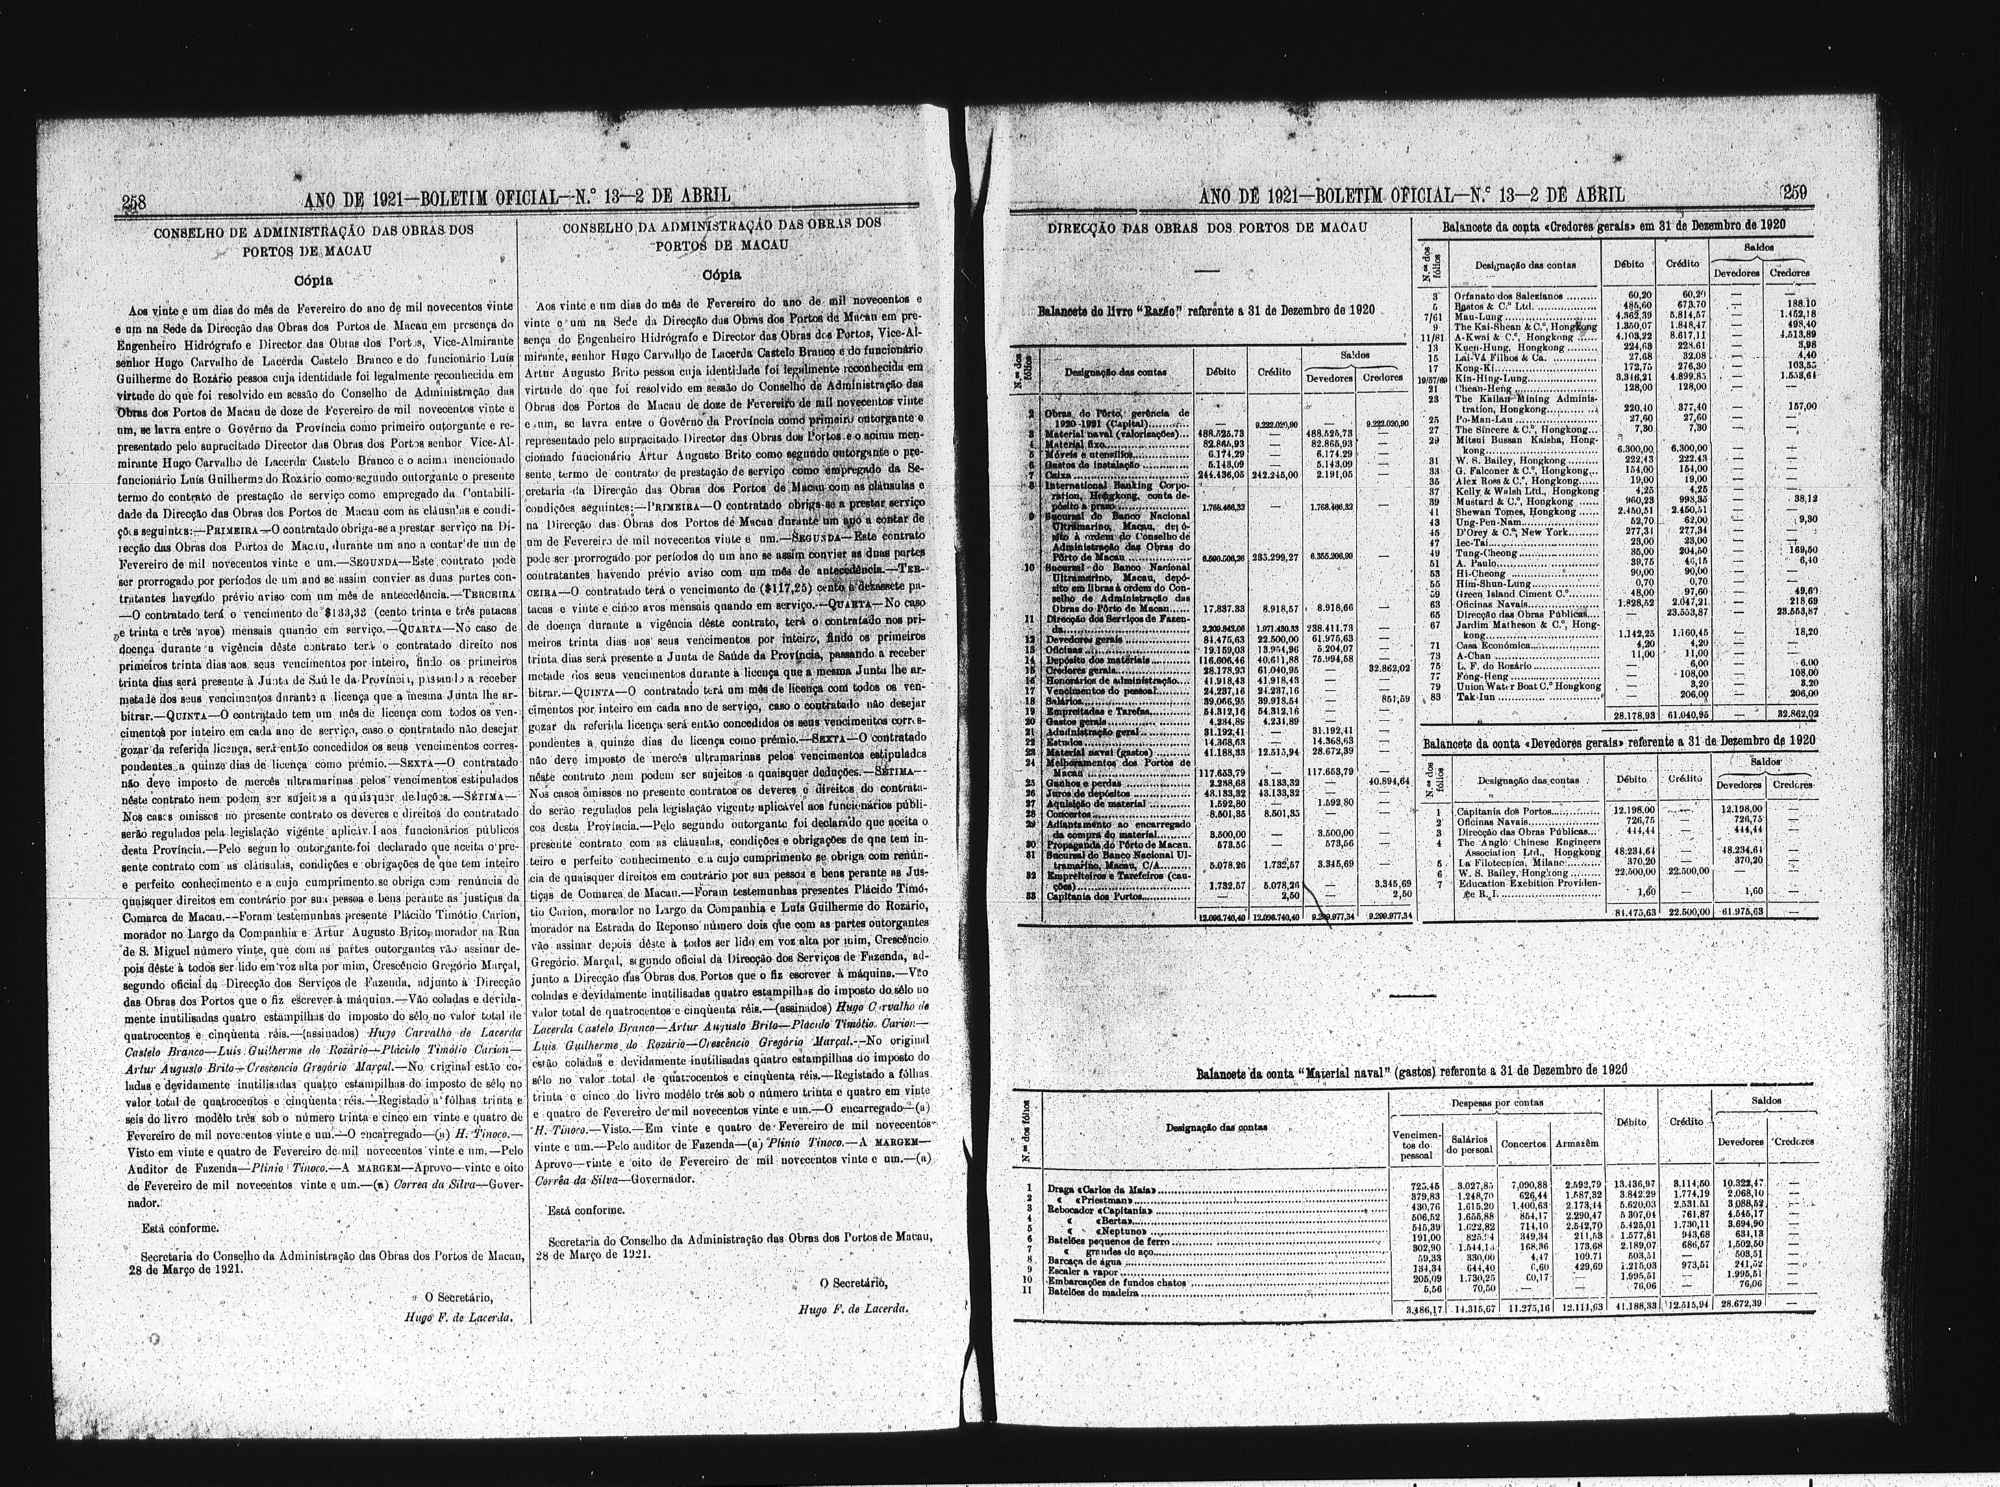 258
ANO DE 1921—BOLETIM OFICIAL—N.º 13—2 DE ABRIL
CONSELHO DE ADMINISTRAÇÃO DAS OBRAS DOS
PORTOS DE MACAU
Cópia
Aos vinte e um dias do mês de Fevereiro do ano de mil novecentos vinte
e um na Sede da Direcção das Obras dos Portos de Macau em presença do
Engenheiro Hidrógrafo e Director das Obras dos Portos, Vice-Almirante
senhor Hugo Carvalho de Lacerda Castelo Branco e do funcionário Luís
Guilherme do Rozário pessoa cuja identidade foi legalmente reconhecida em
virtude do que foi resolvido em sessão do Conselho de Administração das
Obras dos Portos de Macau de doze de Fevereiro de mil novecentos vinte e
um, se lavra entre o Govêrno da Província como primeiro outorgante e re-
presentado pelo supracitado Director das Obras dos Portos senhor Vice-Al-
mirante Hugo Carvalho de Lacerda Castelo Branco e o acima mencionado
funcionário Luís Guilherme do Rozário como segundo outorgante o presente
termo do contrato de prestação de serviço como empregado da Contabili-
dade da Direcção das Obras dos Portos de Macau com as cláusulas e condi-
ções seguintes:—PRIMEIRA—O contratado obriga-se a prestar serviço na Di-
recção das Obras dos Portos de Macau, durante um ano a contar de um de
Fevereiro de mil novecentos vinte e um.—SEGUNDA—Este contrato pode
ser prorrogado por períodos de um ano se assim convier as duas partes con-
tratantes havendo prévio aviso com um mês de antecedência.—TERCEIRA
—O contratado terá o vencimento de $133,33 (cento trinta e três patacas
e trinta e três avos) mensais quando em serviço.—QUARTA—No caso de
doença durante a vigência dêste contrato terá o contratado direito nos
primeiros trinta dias aos seus vencimentos por inteiro, findo os primeiros
trinta dias será presente à Junta de Saúde da Província, passando a receber
metade dos seus vencimentos durante a licença que a mesma Junta lhe ar-
bitrar.—QUINTA—O contratado tem um mês de licença com todos os ven-
cimentos por inteiro em cada ano de serviço, caso o contratado não desejar
gozar da referida licença, será então concedidos os seus vencimentos corres-
pondentes a quinze dias de licença como prémio.—SEXTA—O contratado
não deve imposto de mercês ultramarinas pelos vencimentos estipulados
nêste contrato nem podem ser sujeitos a quaisquer deduções.—SÉTIMA—
Nos casos omissos no presente contrato os deveres e direitos do contratado
serão regulados pela legislação vigente aplicável aos funcionários públicos
desta Província.—Pelo segundo outorgante foi declarado que aceita o pre-
sente contrato com as cláusulas, condições e obrigações de que tem inteiro
e perfeito conhecimento e a cujo cumprimento se obriga com renúncia de
quaisquer direitos em contrário por sua pessoa e bens perante as justiças da
Comarca de Macau.—Foram testemunhas presente Plácido Timótio Carion,
morador no Largo da Companhia e Artur Augusto Brito, morador na Rua
de S. Miguel número vinte, que com as partes outorgantes vão assinar de-
pois dêste à todos ser lido em voz alta por mim, Crescêncio Gregório Marçal,
segundo oficial da Direcção dos Serviços de Fazenda, adjunto à Direcção
das Obras dos Portos que o fiz escrever à máquina.—Vão coladas e devida-
mente inutilisadas quatro estampilhas do imposto do sêlo no valor total de
quatrocentos e cinqüenta réis.—(assinados) Hugo Carvalho de Lacerda
Castelo Branco—Luís Guilherme do Rozário—Plácido Timótio Carion—
Artur Augusto Brito—Crescencio Gregório Marçal.—No original estão co-
ladas e devidamente inutilisadas quatro estampilhas do imposto de sêlo no
valor total de quatrocentos e cinqüenta réis.—Registado a fôlhas trinta e
seis do livro modêlo três sob o número trinta e cinco em vinte e quatro de
Fevereiro de mil novecentos vinte e um.—O encarregado—(a) H. Tinoco.—
Visto em vinte e quatro de Fevereiro de mil novecentos vinte e um.—Pelo
Auditor de Fazenda—Plinio Tinoco.—A MARGEM—Aprovo—vinte e oito
de Fevereiro de mil novecentos vinte e um.—(a) Correa da Silva—Gover-
nador.
Está conforme.
Secretaria do Conselho da Administração das Obras dos Portos de Macau,
28 de Março de 1921.
O Secretário,
Hugo F. de Lacerda.
CONSELHO DA ADMINISTRAÇÃO DAS OBRAS DOS
PORTOS DE MACAU
Cópia
Aos vinte e um dias do mês de Fevereiro do ano de mil novecentos e
vinte e um na Sede da Direcção das Obras dos Portos de Macau em pre-
sença do Engenheiro Hidrógrafo e Director das Obras dos Portos, Vice-Al-
mirante, senhor Hugo Carvalho de Lacerda Castelo Branco e do funcionário
Artur Augusto Brito pessoa cuja identidade foi legalmente reconhecida em
virtude do que foi resolvido em sessão do Conselho de Administração das
Obras dos Portos de Macau de doze de Fevereiro de mil novecentos vinte
e um, se lavra entre o Govêrno da Província como primeiro outorgante e
representado pelo supracitado Director das Obras dos Portos e o acima men-
cionado funcionário Artur Augusto Brito como segundo outorgante o pre-
sente termo de contrato de prestação de serviço como empregado da Se-
cretaria da Direcção das Obras dos Portos de Macau com as cláusulas e
condições seguintes:—PRIMEIRA—O contratado obriga-se a prestar serviço
na Direcção das Obras dos Portos de Macau durante um ano a contar de
um de Fevereiro de mil novecentos vinte e um.—SEGUNDA—Este contrato
pode ser prorrogado por períodos de um ano se assim convier as duas partes
contratantes havendo prévio aviso com um mês de antecedência.—TER-
CEIRA—O contratado terá o vencimento de ($117,25) cento e dezassete pa-
tacas e vinte e cinco avos mensais quando em serviço.—QUARTA—No caso
de doença durante a vigência dêste contrato, terá o contratado nos pri-
meiros trinta dias aos seus vencimentos por inteiro, findo os primeiros
trinta dias será presente a Junta de Saúde da Província, passando a receber
metade dos seus vencimentos durante a licença que a mesma Junta lhe ar-
bitrar.—QUINTA—O contratado terá um mês de licença com todos os ven-
cimentos por inteiro em cada ano de serviço, caso o contratado não desejar
gozar da referida licença será então concedidos os seus vencimentos corres-
pondentes a quinze dias de licença como prémio.—SEXTA—O contratado
não deve imposto de mercês ultramarinas pelos vencimentos estipulados
nêste contrato nem podem ser sujeitos a quaisquer deduções.—SÉTIMA—
Nos casos omissos no presente contratos os deveres e direitos do contrata-
do serão regulados pela legislação vigente aplicável aos funcionários públi-
cos desta Província.—Pelo segundo outorgante foi declarado que aceita o
presente contrato com as cláusulas, condições e obrigações de que tem in-
teiro e perfeito conhecimento e a cujo cumprimento se obriga com renún-
cia de quaisquer direitos em contrário por sua pessoa e bens perante as Jus-
tiças de Comarca de Macau.—Foram testemunhas presentes Plácido Timó-
tio Carion, morador no Largo da Companhia e Luís Guilherme do Rozário,
morador na Estrada do Reponso número dois que com as partes outorgantes
vão assinar depois dêste à todos ser lido em voz alta por mim, Crescêncio
Gregório Marçal, segundo oficial da Direcção dos Serviços de Fazenda, ad-
junto a Direcção das Obras dos Portos que o fiz escrever à máquina.—Vão
coladas e devidamente inutilisadas quatro estampilhas do imposto do sêlo no
valor total de quatrocentos e cinqüenta réis.—(assinados) Hugo Carvalho de
Lacerda Castelo Branco—Artur Augusto Brito—Plácido Timótio Carion—
Luís Guilherme do Rozário—Crescêncio Gregório Marçal.—No original
estão coladas e devidamente inutilisadas quatro estampilhas do imposto do
sêlo no valor total de quatrocentos e cinqüenta réis.—Registado a fôlhas
trinta e cinco do livro modêlo três sob o número trinta e quatro em vinte
e quatro de Fevereiro de mil novecentos vinte e um.—O encarregado—(a)
H. Tinoco.—Visto.—Em vinte e quatro de Fevereiro de mil novecentos
vinte e um.—Pelo auditor de Fazenda—(a) Plínio Tinoco.—A MARGEM—
Aprovo—vinte e oito de Fevereiro de mil novecentos vinte e um.—(a)
Corrêa da Silva—Governador.
Está conforme.
Secretaria do Conselho da Administração das Obras dos Portos de Macau,
28 de Março de 1921.
O Secretário,
Hugo F. de Lacerda.
ANO DE 1921—BOLETIM OFICIAL—N.º 13—2 DE ABRIL
259
DIRECÇÃO DAS OBRAS DOS PORTOS DE MACAU
Balancete do livro "Razão" referente a 31 de Dezembro de 1920
N.os dos fólios Designação das contas Débito Crédito Saldos
Devedores Credores
2 Obras do Pôrto, gerência de
1920-1921 (Capital) — 9.222.020,90 — 9.222.020,90
3 Material naval (valorizações) 488.525,73 — 488.525,73 —
4 Material fixo 82.865,93 — 82.865,93 —
5 Móveis e utensílios 6.174,29 — 6.174,29 —
6 Gastos de instalação 5.143,09 — 5.143,09 —
7 Caixa 244.436,05 242.245,00 2.191,05 —
8 International Banking Corpo-
ration, Hongkong, conta de-
pósito a prazo 1.768.466,32 — 1.768.466,32 —
9 Sucursal do Banco Nacional
Ultramarino, Macau, depó-
sito à ordem do Conselho de
Administração das Obras do
Pôrto de Macau 6.590.506,26 235.299,27 6.355.206,99 —
10 Sucursal do Banco Nacional
Ultramarino, Macau, depó-
sito em libras à ordem do Con-
selho de Administração das
Obras do Pôrto de Macau 17.837.33 8.918,57 8.918,66 —
11 Direcção dos Serviços de Fazen-
da 2.209.842,06 1.971.430,33 238.411,73 —
12 Devedores gerais 81.475,63 22.500,00 61.975,63 —
13 Oficinas 19.159,03 13.954,96 5.204,07 —
14 Depósito dos matériais 116.606,46 40.611,88 75.994,58 —
15 Credores gerais 28.178,93 61.040,95 — 32.862,02
16 Honorários de administração 41.918,43 41.918,43 — —
17 Vencimentos do pessoal 24.237,16 24.237,16 — —
18 Salários 39.066,95 39.918,54 — 851,59
19 Empreitadas e Tarefas 54.312,16 54.312,16 — —
20 Gastos gerais 4.284,89 4.231,89 — —
21 Administração geral 31.192,41 — 31.192,41 —
22 Estudos 14.368,63 — 14.368,63 —
23 Material naval (gastos) 41.188,33 12.515,94 28.672,39 —
24 Melhoramentos dos Portos de
Macau 117.653,79 — 117.653,79 —
25 Ganhos e perdas 2.288,68 43.183,32 — 40.894,64
26 Juros de depósitos 43.183,32 43.133,32 — —
27 Aquisição de material 1.592,80 — 1.592,80 —
28 Concertos 8.501,35 8.501,35 — —
29 Adiantamento ao encarregado
da compra do material 3.500,00 — 3.500,00 —
30 Propaganda do Pôrto de Macau. 573,56 — 573,56 —
31 Sucursal do Banco Nacional Ul-
tramarino, Macau, C/A 5.078,26 1.732,57 3.345,69 —
32 Empreiteiros e Tarefeiros (cau-
ções) 1.732,57 5.078,26 — 3.345,69
33 Capitania dos Portos — 2,50 — 2,50
12.096.740,40 12.096.740,40 9.299.977,34 9.299.977,34
Balancete da conta «Credores gerais» em 31 de Dezembro de 1920
N.os dos fólios Designação das contas Débito Crédito Saldos
Devedores Credores
3 Orfanato dos Salezianos 60,20 60,20 — —
5 Bastos & C.ª Ltd. 485,60 673,70 — 188,10
7/61 Mau-Lung 4.362,39 5.814,57 — 1.452,18
9 The Kai-Shean & C.º, Hongkong 1.350,07 1.848,47 — 498,40
11/81 A-Kwai & C.º, Hongkong 4.103,22 8.617,11 — 4.513,89
13 Kuen-Hung, Hongkong 224,63 228,61 — 3,98
15 Lai-Vá Filhos & Ca. 27,68 32,08 — 4,40
17 Kong-Ki 172,75 276,30 — 103,55
19/57/69 Kin-Hing-Lung 3.346,21 4.899,85 — 1.553,64
21 Chean-Heng 128,00 128,00 — —
23 The Kailan Mining Adminis-
tration, Hongkong 220,40 377,40 — 157,00
25 Po-Man-Lau 27,60 27,60 — —
27 The Sincere & C.º, Hongkong 7,30 7,30 — —
29 Mitsui Bussan Kaisha, Hong-
kong 6.300,00 6.300,00 — —
31 W. S. Bailey, Hongkong 222,43 222,43 — —
33 G. Falconer & C.º, Hongkong 154,00 154,00 — —
35 Alex Ross & C.º, Hongkong 19,00 19,00 — —
37 Kelly & Walsh Ltd., Hongkong 4,25 4,25 — —
39 Mustard & C.º, Hongkong 960,23 998,35 — 38,12
41 Shewan Tomes, Hongkong 2.450,51 2.450,51 — —
43 Ung-Pen-Nam 52,70 62,00 — 9,30
45 D'Orey & C.ª, New York 277,31 277,34 — —
47 Iec-Tai 23,00 23,00 — —
49 Tung-Cheong 35,00 204,50 — 169,50
51 A. Paulo 39,75 46,15 — 6,40
53 Hi-Cheong 90,00 90,00 — —
55 Him-Shun-Lung 0,70 0,70 — —
59 Green Island Ciment C.º 48,00 97,60 — 49,60
63 Oficinas Navais 1.828,52 2.047,21 — 218,69
65 Direcção das Obras Públicas — 23.553,87 — 23.553,87
67 Jardim Matheson & C.º, Hong-
kong 1.142,25 1.160,45 — 18,20
71 Casa Económica 4,20 4,20 — —
73 A-Chan 11,00 11,00 — —
75 L. F. do Rozário — 6,00 — 6,00
77 Fong-Heng — 108,00 — 108,00
79 Union Water Boat C.º Hongkong — 3,20 — 3,20
83 Tak-Iun — 206,00 — 206,00
28.178,93 61.040,95 — 32.862,02
Balancete da conta «Devedores gerais» referente a 31 de Dezembro de 1920
N.os dos fólios Designação das contas Débito Crédito Saldos
Devedores Credores
1 Capitania dos Portos 12.198,00 — 12.198,00 —
2 Oficinas Navais 726,75 — 726,75 —
3 Direcção das Obras Públicas 444,44 — 444,44 —
4 The Anglo Chinese Engineers
Association Ltd., Hongkong 48.234,64 — 48.234,61 —
5 La Filotecnica, Milano 370,20 — 370,20 —
6 W. S. Bailey, Hongkong 22.500,00 22.500,00 — —
7 Education Exebition Providen-
ce R. I. 1,60 — 1,60 —
81.475,63 22.500,00 61.975,63 —
Balancete da conta "Material naval" (gastos) referente a 31 de Dezembro de 1920
N.os dos fólios Designação das contas Despesas por contas Débito Crédito Saldos
Vencimen-
tos do
pessoal Salários
do pessoal Concertos Armazêm Devedores Credores
1 Draga «Carlos da Maia» 725,45 3.027,85 7,090,88 2.592,79 13.436,97 3.114,50 10.322,47 —
2 « «Priestman» 379,83 1.248,70 626,44 1.587,32 3.842,29 1.774,19 2.068,10 —
3 Rebocador «Capitania» 430,76 1.615,20 1.400,63 2.173,44 5.620,03 2.531,51 3.088,52 —
4 « «Berta» 506,52 1.655,88 854,17 2.290,47 5.307,04 761,87 4.545,17 —
5 « «Neptuno» 545,39 1.622,82 714,10 2.542,70 5.425,01 1.730,11 3.694,90 —
6 Batelões pequenos de ferro 191,00 825,94 349,34 211,53 1.577,81 943,68 634,13 —
7 « grandes do aço 302,90 1.544,13 168,36 173,68 2.189,07 686,57 1.502,50 —
8 Barcaça de água 59,33 330,00 4,47 109,71 503,51 — 503,51 —
9 Escaler a vapor 134,34 644,40 6,60 429,69 1.215,03 973,51 241,52 —
10 Embarcações de fundos chatos 205,09 1.730,25 60,17 — 1.995,51 — 1.995,51 —
11 Batelões de madeira 5,56 70,50 — — 76,06 — 76,06 —
3.486,17 14.315,67 11.275,16 12.111,63 41.188,33 12.515,94 28.672,39 —